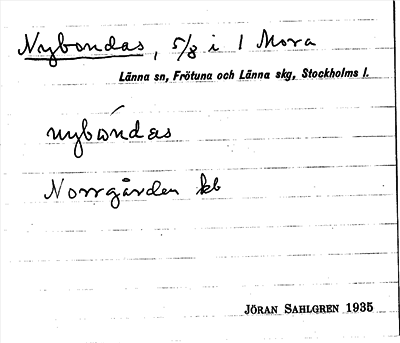 Nybondas, 5/8 i 1 Mora
Länna sn, Frötuna och Länna skg, Stockholms l.
nybóndas
Norrgården kb
JÖRAN SAHLGREN 1935